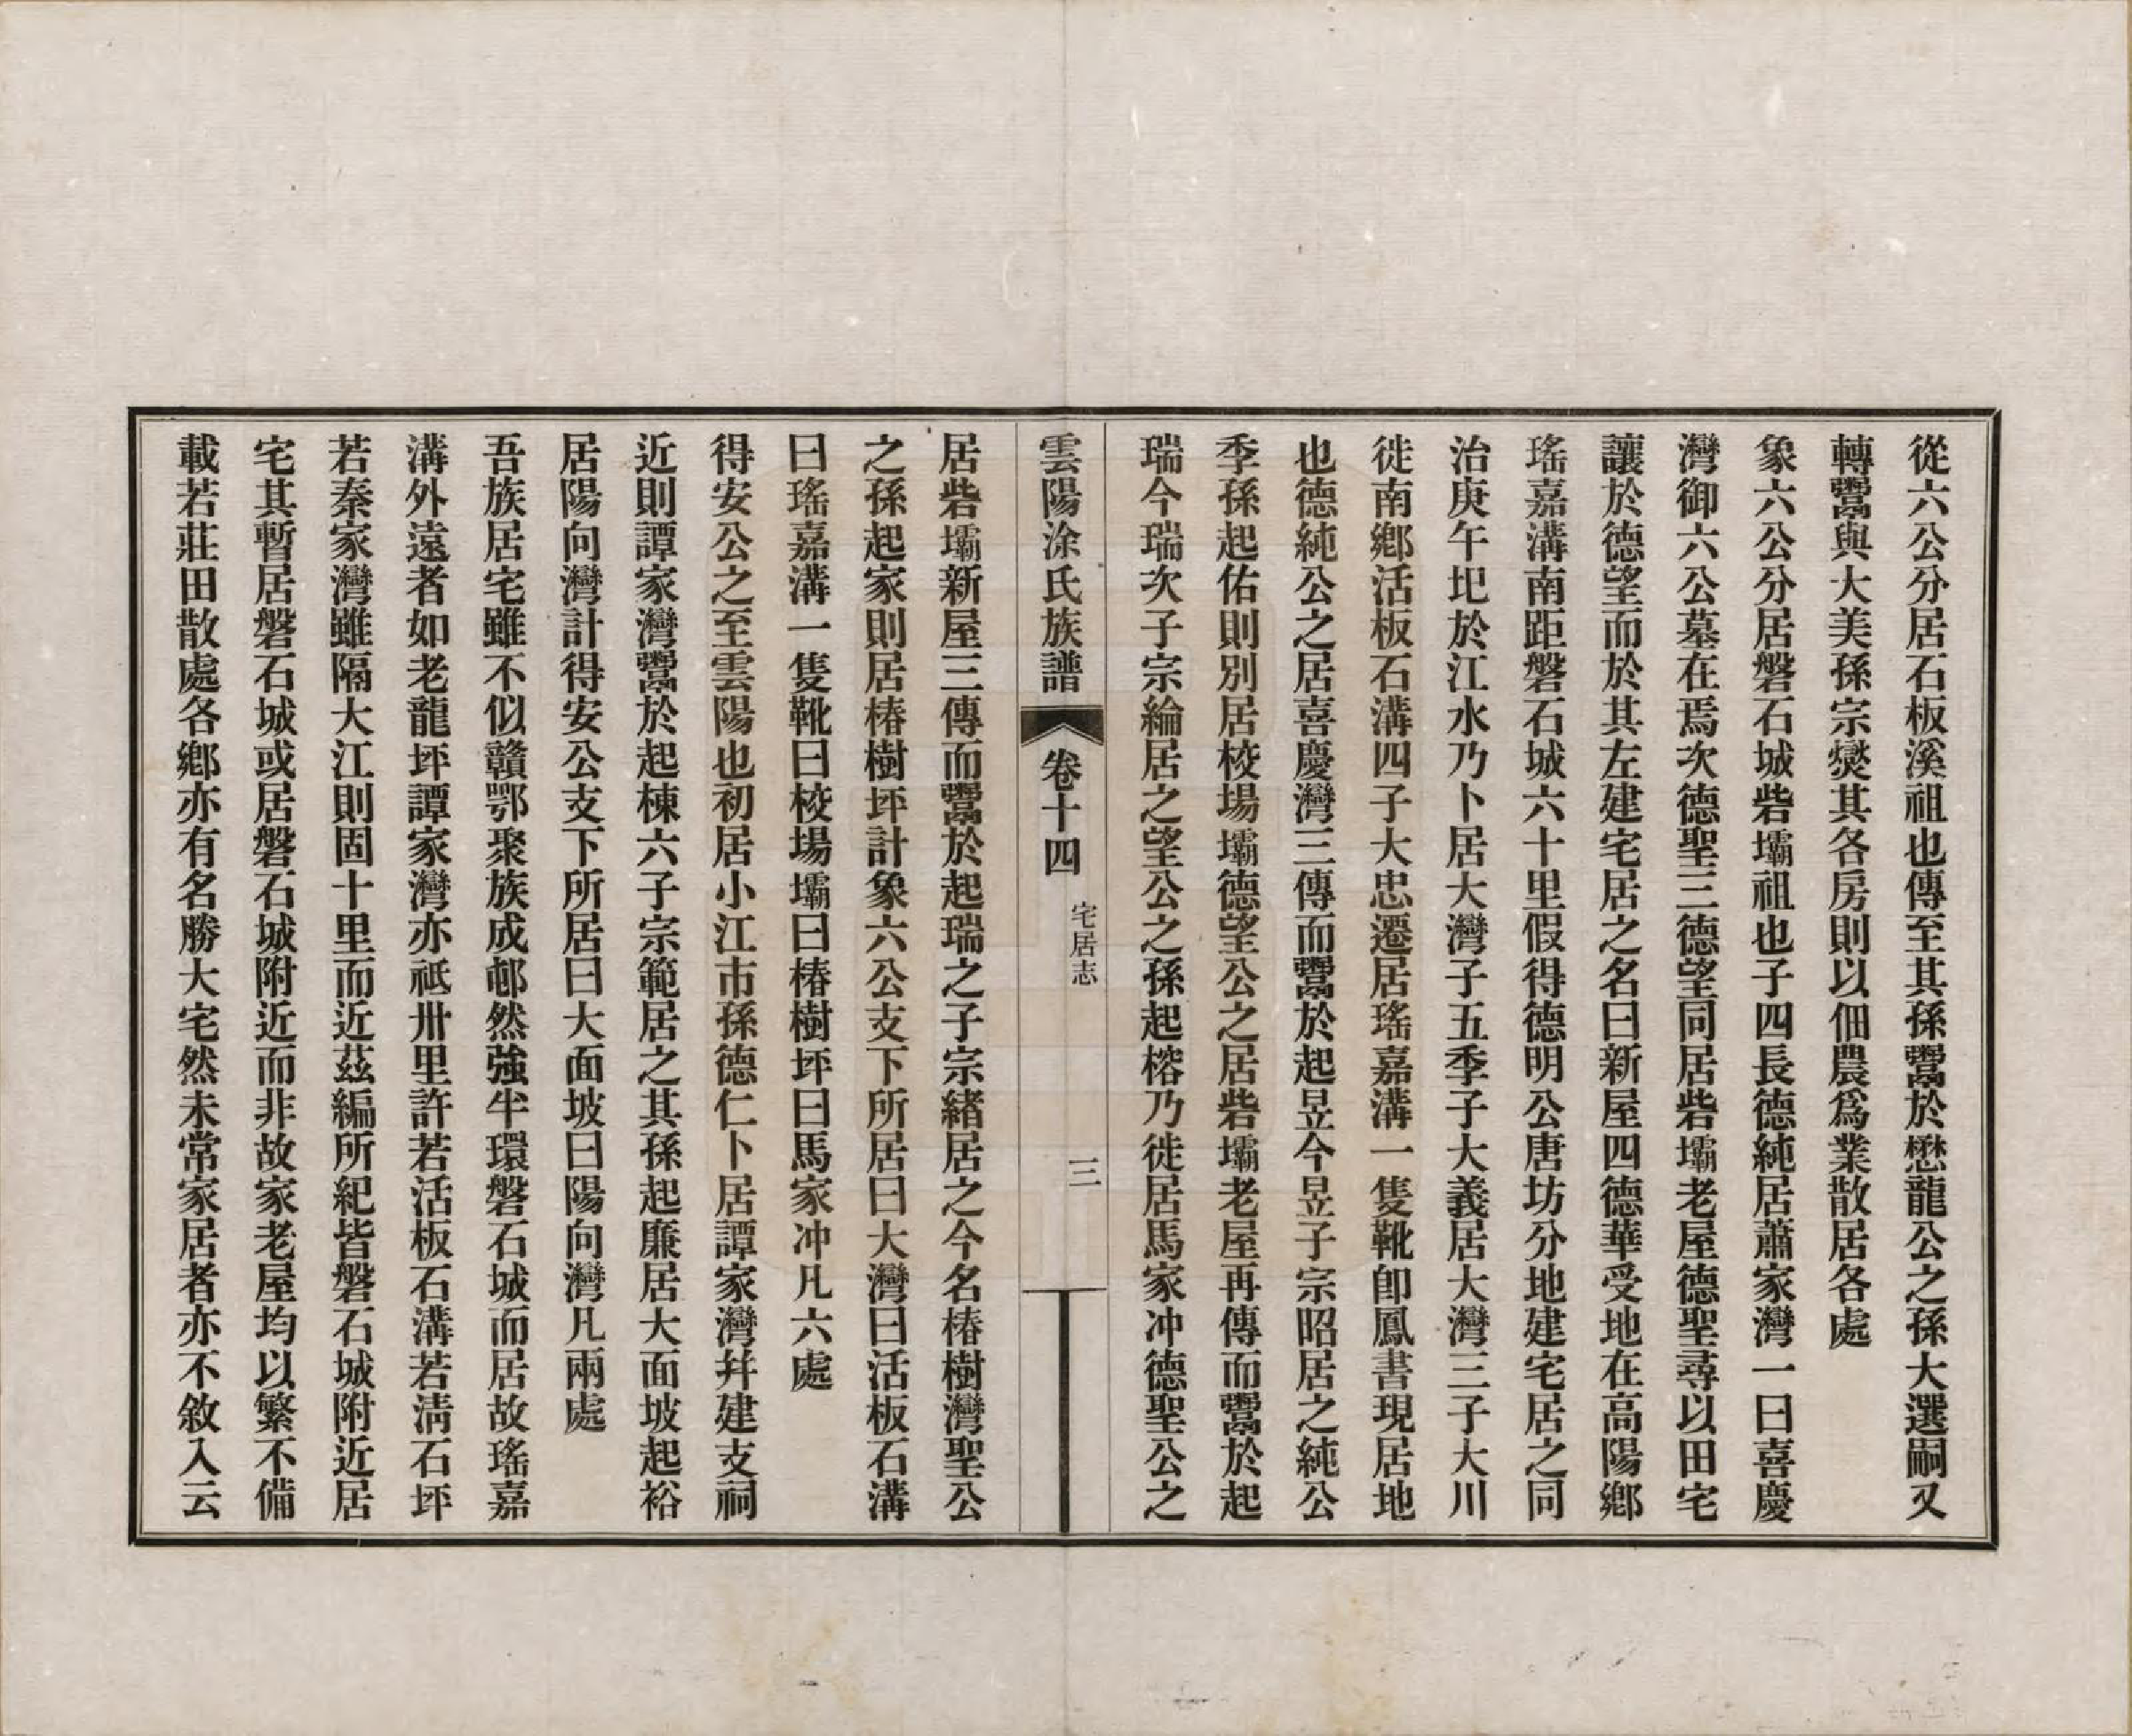 從六公分居石板溪祖也傳至其孫鬻於懋龍公之孫大選嗣又
轉鬻與大美孫宗燮其各房則以佃農爲業散居各處
象六公分居磐石城砦壩祖也子四長德純居蕭家灣一曰喜慶
灣御六公墓在焉次德聖三德望同居砦壩老屋德聖尋以田宅
讓於德望而於其左建宅居之名曰新屋四德華受地在高陽鄉
瑤嘉溝南距磐石城六十里假得德明公唐坊分地建宅居之同
治庚午圮於江水乃卜居大灣子五季子大義居大灣三子大川
徙南鄉活板石溝四子大忠遷居瑤嘉溝一隻靴卽鳳書現居地
也德純公之居喜慶灣三傳而鬻於起昱今昱子宗昭居之純公
季孫起佑則別居校場壩德望公之居砦壩老屋再傳而鬻於起
瑞今瑞次子宗綸居之望公之孫起榕乃徙居馬家冲德聖公之
雲陽涂氏族譜 卷十四 宅居志 三
居砦壩新屋三傳而鬻於起瑞之子宗緒居之今名椿樹灣聖公
之孫起家則居椿樹坪計象六公支下所居曰大灣曰活板石溝
曰瑤嘉溝一隻靴曰校場壩曰椿樹坪曰馬家冲凡六處
得安公之至雲陽也初居小江市孫德仁卜居譚家灣幷建支祠
近則譚家灣鬻於起棟六子宗範居之其孫起廉居大面坡起裕
居陽向灣計得安公支下所居曰大面坡曰陽向灣凡兩處
吾族居宅雖不似贛鄂聚族成邨然強半環磐石城而居故瑤嘉
溝外遠者如老龍坪譚家灣亦祗卅里許若活板石溝若淸石坪
若秦家灣雖隔大江則固十里而近茲編所紀皆磐石城附近居
宅其暫居磐石城或居磐石城附近而非故家老屋均以繁不備
載若莊田散處各鄉亦有名勝大宅然未常家居者亦不敘入云